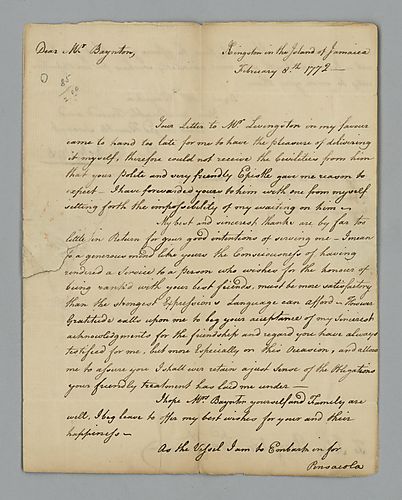 Dear Mr. Baynton,
Kingston in the Island of Jamaica
February 8.th 1772 —
85
2.00
Your Letter to Mr. Levengston in my favour
came to hand too late for me to have the pleasure of delivering
it myself, therefore could not receive the Civilities from him
that your Polite and very friendly Epistle gave me reason to
expect — I have forwarded yours to him with one from myself
setting forth the impossibility of my waiting on him —
My best and sincerest thanks are by far too
little in Return for your good intentions of serving me — I mean
to a generous mind like yours the Consciousness of having
rendered a Service to a person who wishes for the honour of
being rank'd with your best friends, must be more satisfactory
than the strongest Expressions Language can afford — However
Gratitude calls upon me to beg your acceptance of my Sincerest
acknowledgments for the friendship and regard you have always
testified for me, but more Especially on this Occasion, and allow
me to assure you I shall ever retain a just Sense of the Obligations
your friendly treatment has laid me under —
I hope Mrs. Baynton yourself and Family are
well, I beg leave to offer my best wishes for your and their
happiness —
As the Vessel I am to Embark in for
Pensacola